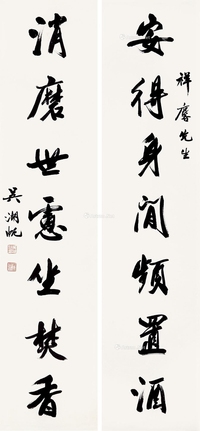 祥麐先生
安得身閒頻置酒
消磨世慮坐焚香
吳湖帆